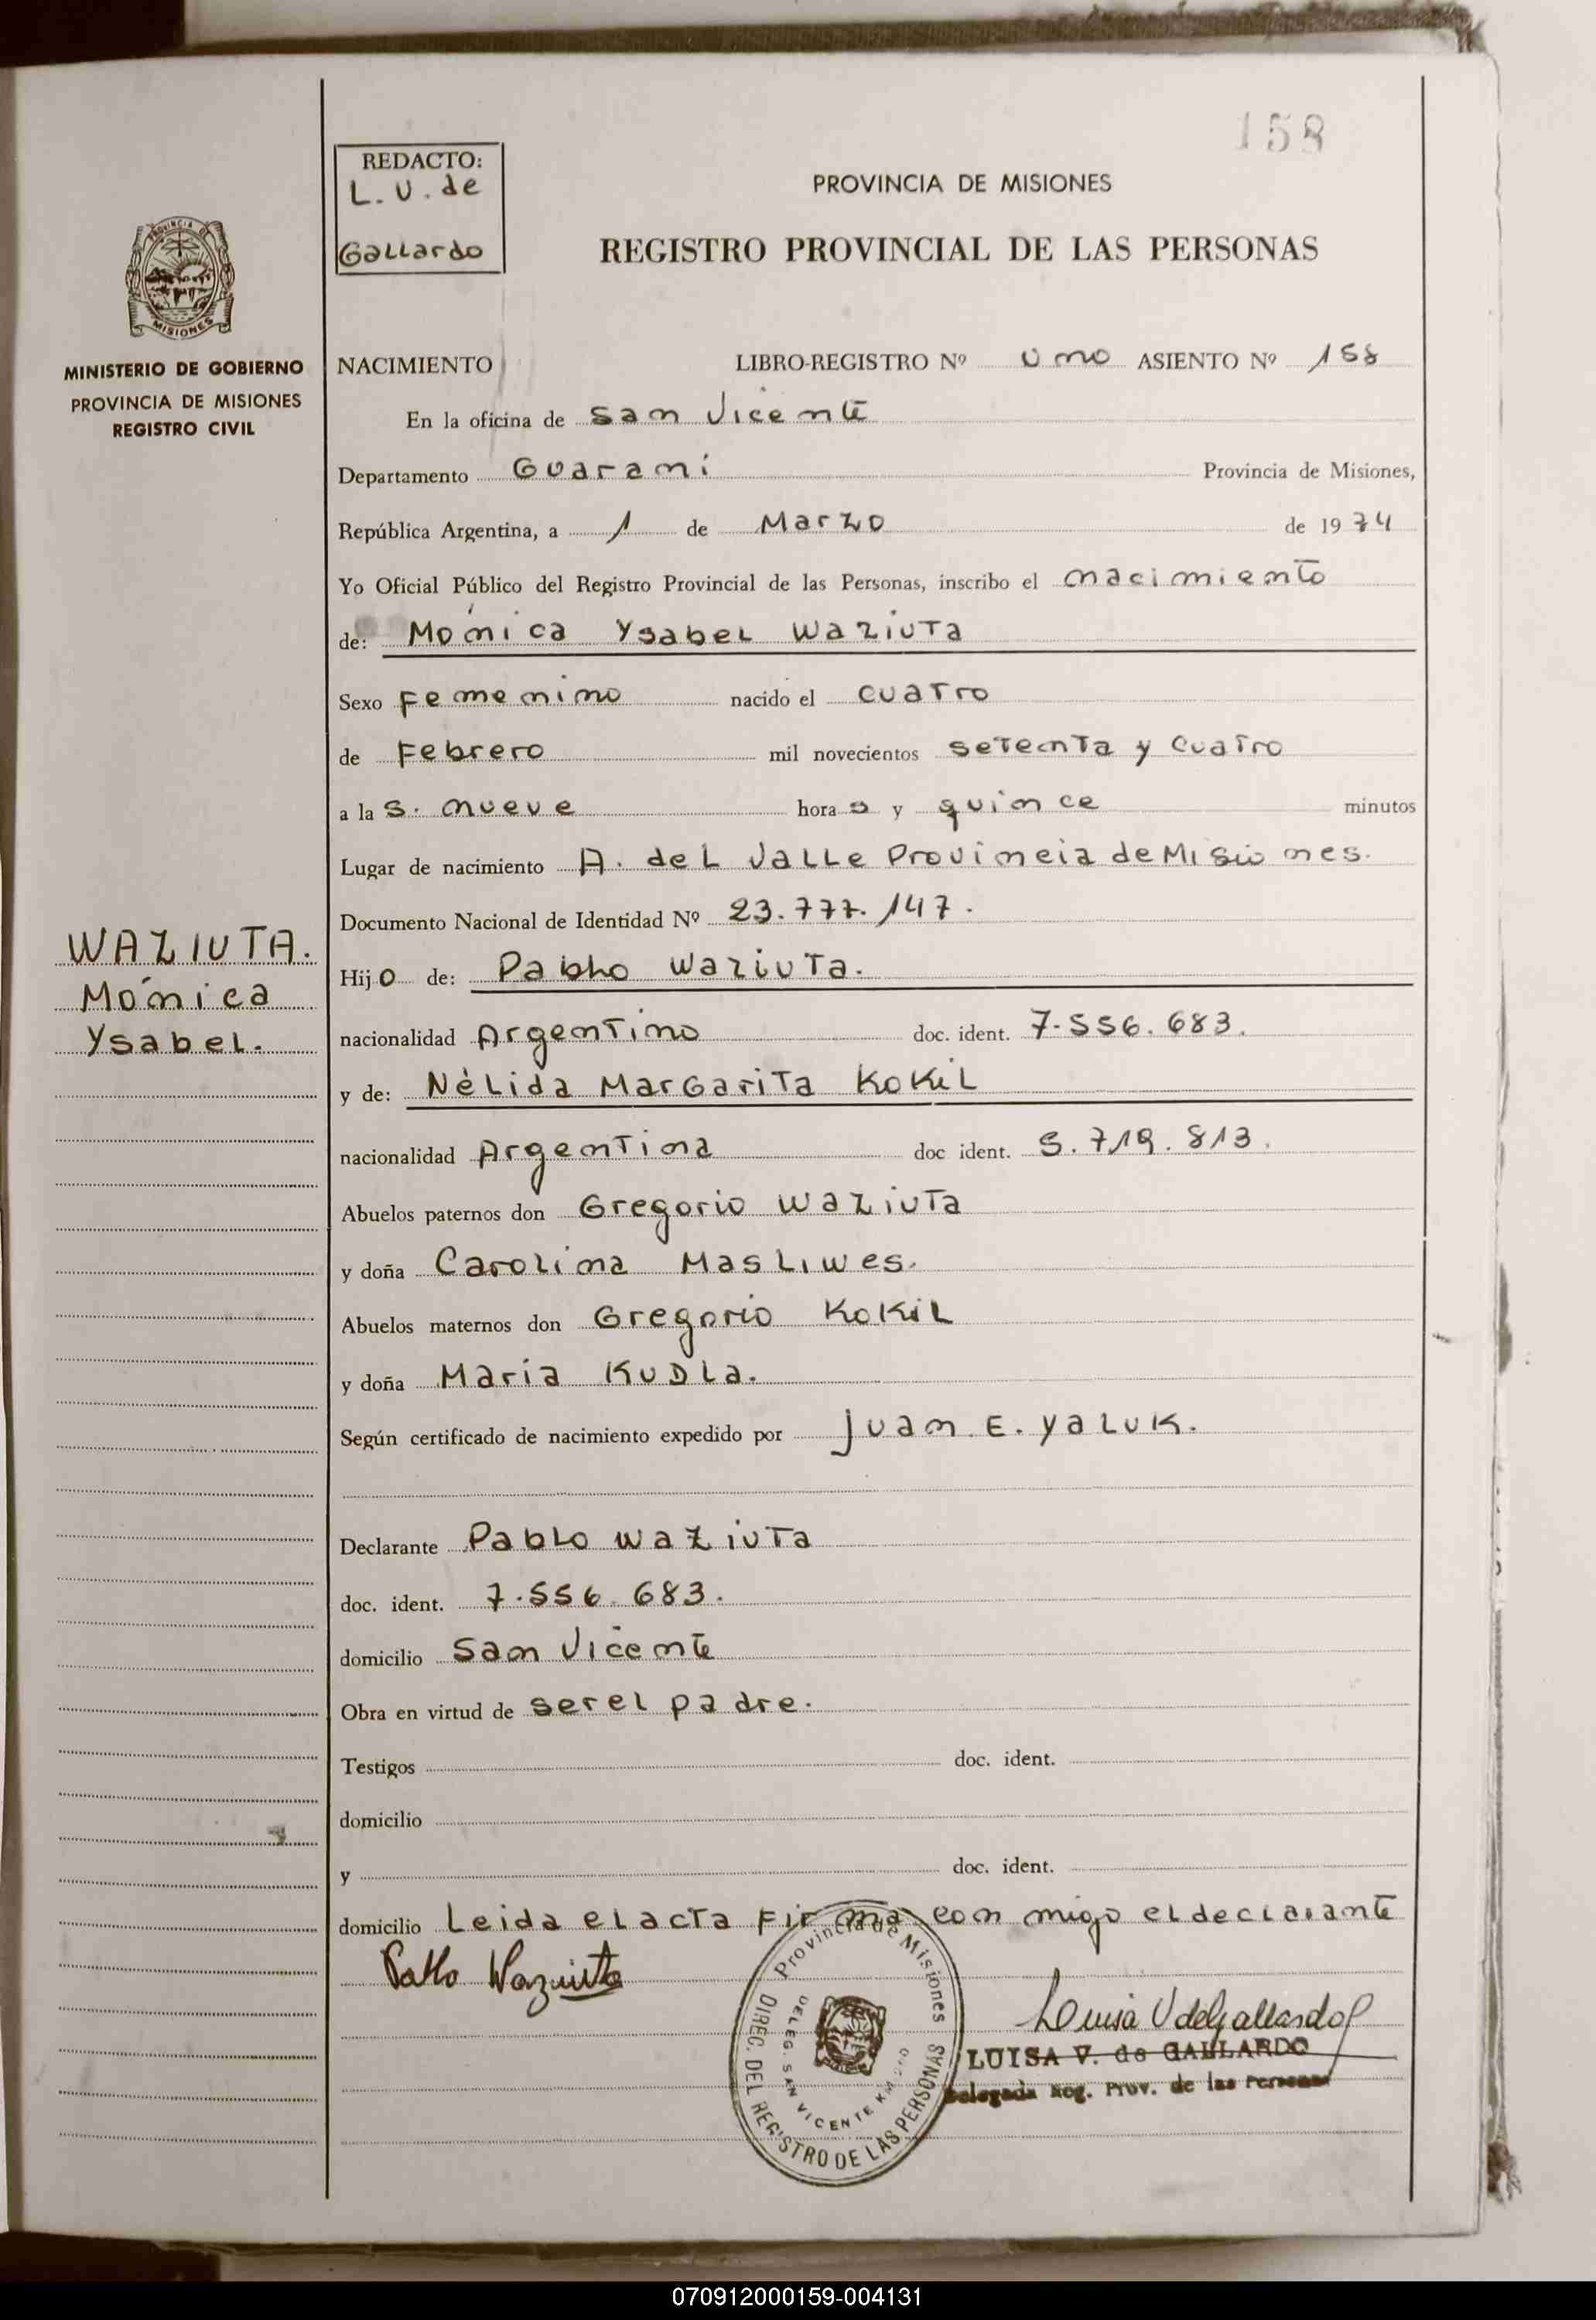 158
REDACTO:
L. V. de
Gallardo
PROVINCIA DE MISIONES
REGISTRO PROVINCIAL DE LAS PERSONAS
PROVINCIA DE
MISIONES
MINISTERIO DE GOBIERNO
PROVINCIA DE MISIONES
REGISTRO CIVIL
NACIMIENTO LIBRO-REGISTRO Nº uno ASIENTO Nº 158
En la oficina de San Vicente
Departamento Guaraní Provincia de Misiones,
República Argentina, a 1 de Marzo de 1974
Yo Oficial Público del Registro Provincial de las Personas, inscribo el nacimiento
de: Mónica Ysabel Waziuta
Sexo Femenino nacido el cuatro
de Febrero mil novecientos setenta y cuatro
a las. nueve horas y quince minutos
Lugar de nacimiento A. del Valle Provincia de Misiones.
Documento Nacional de Identidad Nº 23.777.147.
WAZIUTA.
Mónica
Ysabel.
Hijo de: Pablo Waziuta.
nacionalidad Argentino doc. ident. 7.556.683.
y de: Nélida Margarita Kokil
nacionalidad Argentina doc ident. 5.719.813.
Abuelos paternos don Gregorio Waziuta
y doña Carolina Masliwes.
Abuelos maternos don Gregorio Kokil
y doña María Kudla.
Según certificado de nacimiento expedido por Juan E. Yaluk.
Declarante Pablo Waziuta
doc. ident. 7.556.683.
domicilio San Vicente
Obra en virtud de ser el padre.
Testigos doc. ident.
domicilio
y doc. ident.
domicilio Leida el acta firma con migo el declarante
Pablo Waziuta
Provincia de Misiones
DIREC. DEL REGISTRO DE LAS PERSONAS
DELEG. SAN VICENTE KM
Luisa V de Gallardo
LUISA V. de GALLARDO
Delegada Reg. Prov. de las Personas
070912000159-004131